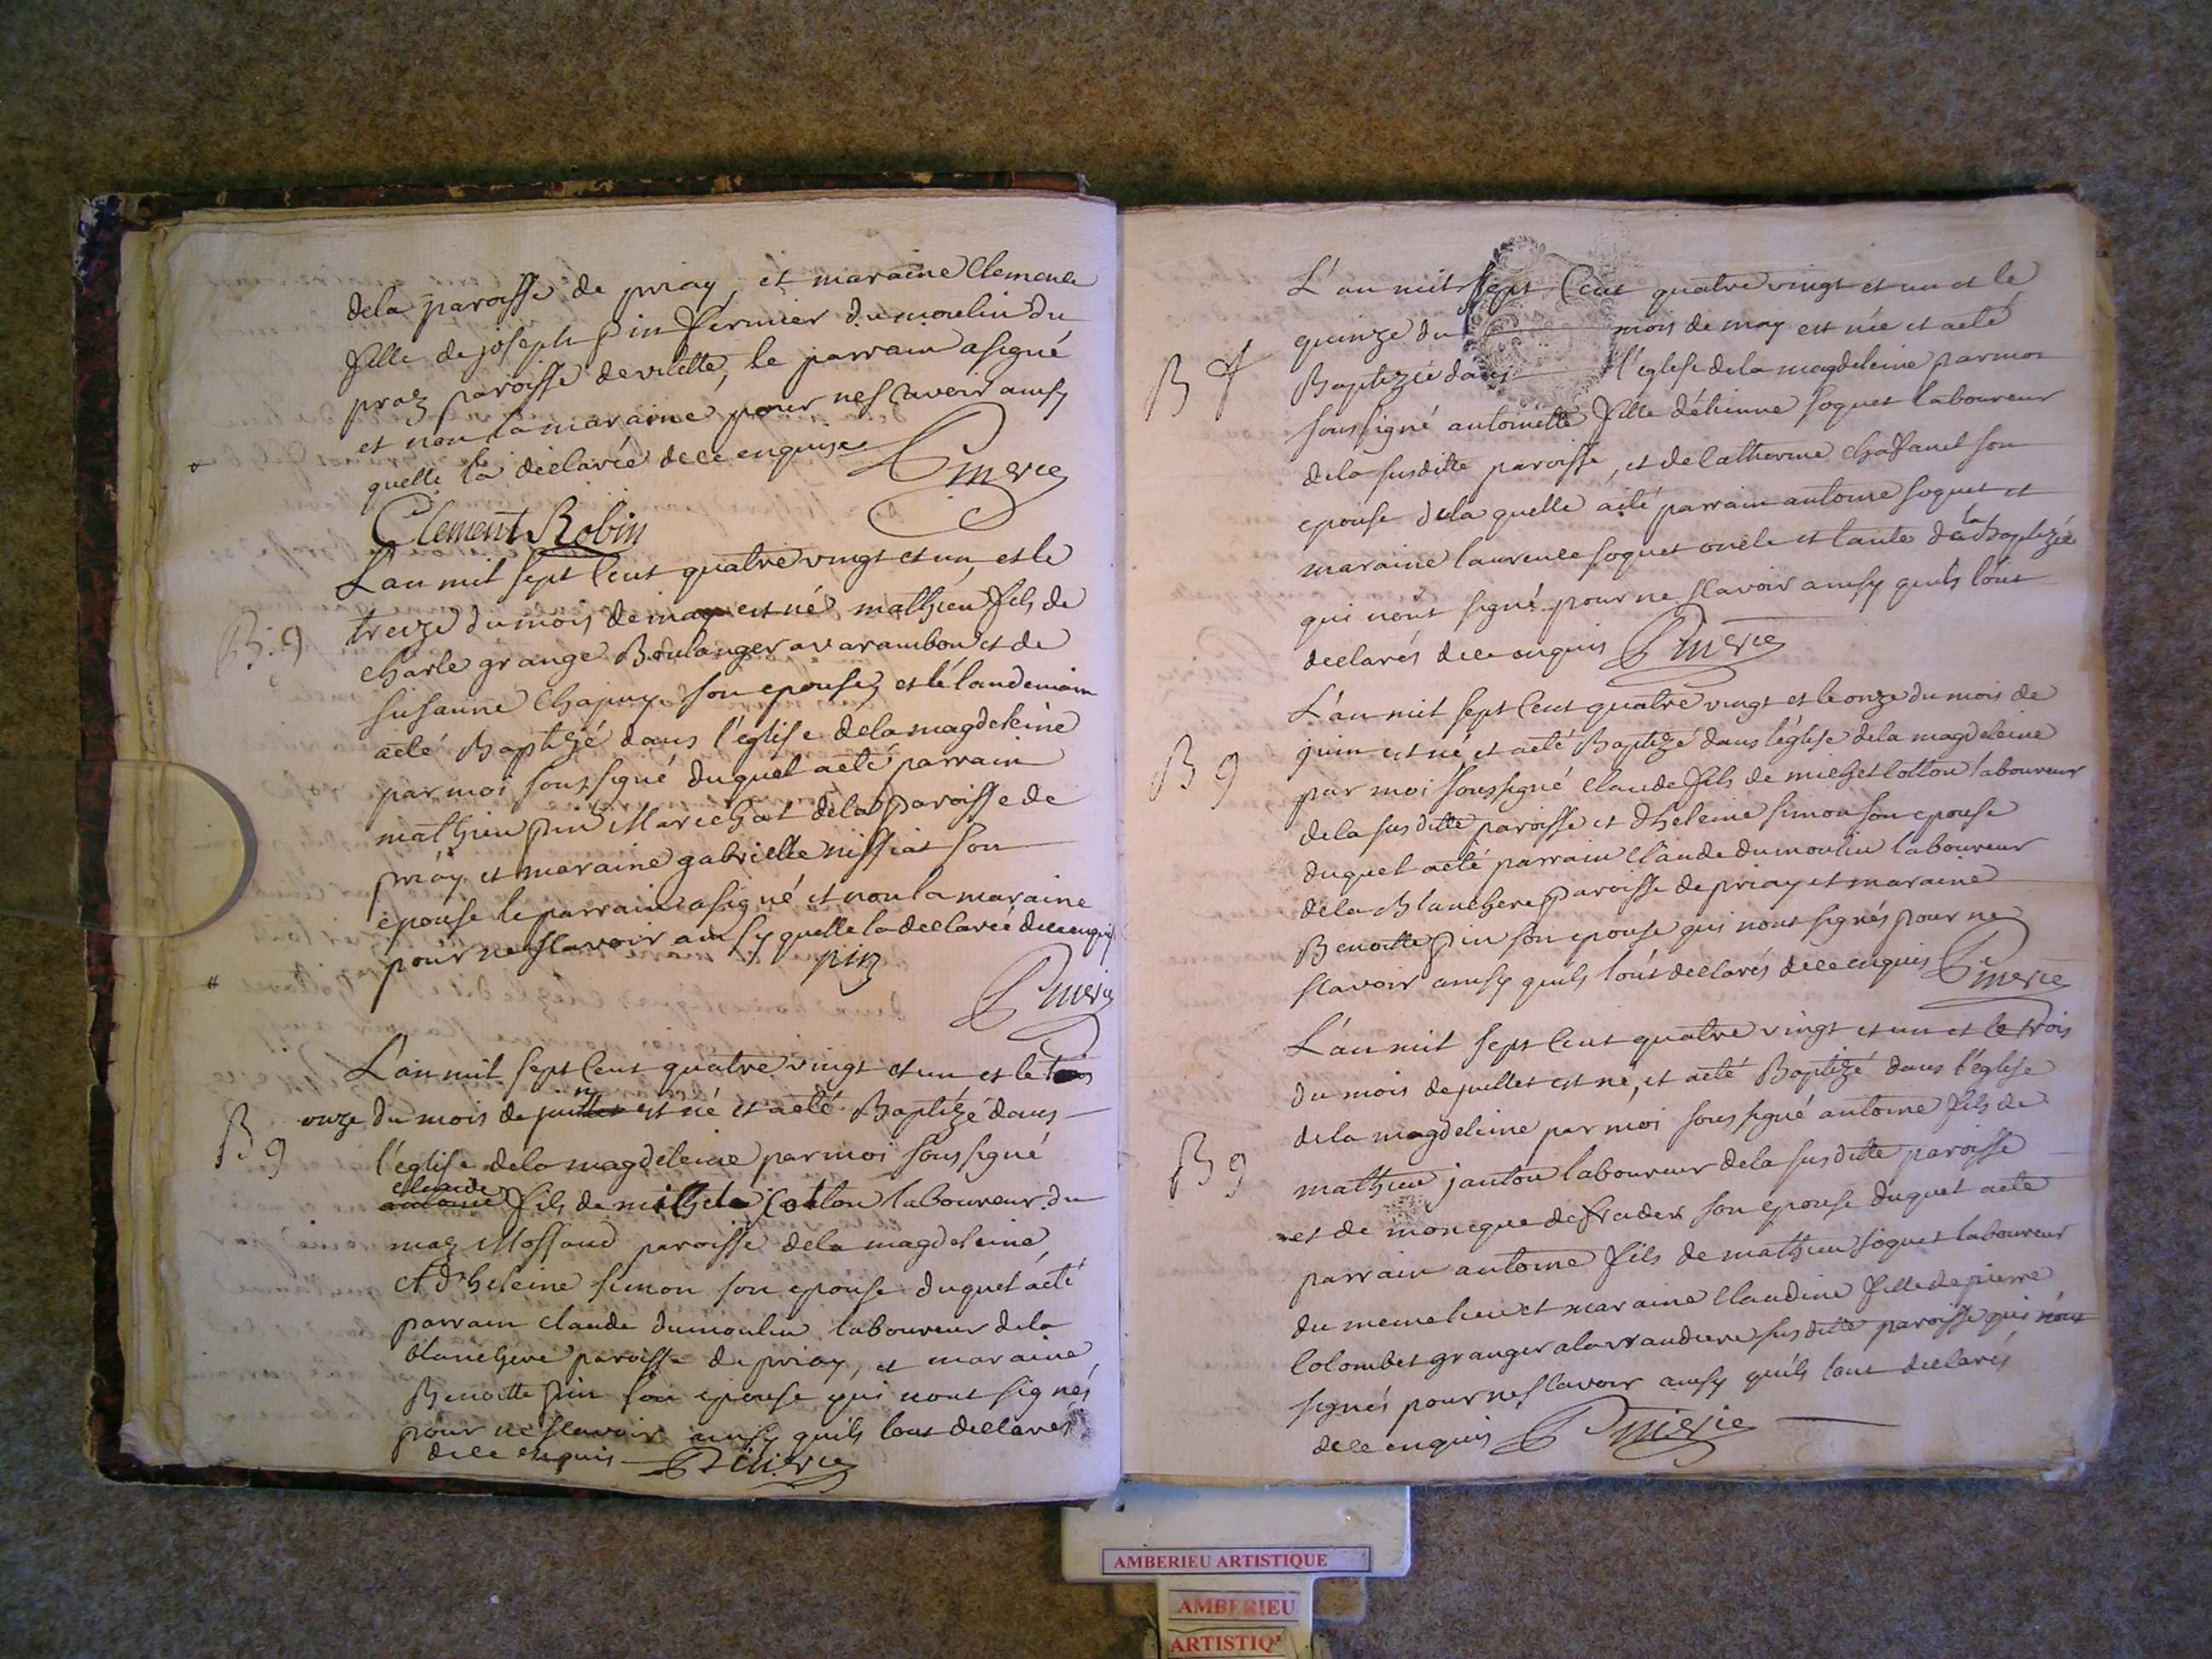 dela paroisse de priay, et maraine Clemence
fille de joseph pin fermier du moulin du
praz paroisse devilette, le parrain asigné
et non la maraine pour nesçavoir ainsy
quelle la declarée dece enquise
Clement Robin
L'an mil sept Cent quatre vingt et un, et le
B. g treize du mois de may est né mathieu fils de
charle grange Boulanger avarambon et de
susanne Chapuy son epouse, et le landemain
aeté Baptizé dans l'église dela magdeleine
par moi soussigné duquel aeté parrain
mathieu pin Marechat dela paroisse de
priay et maraine gabrielle nissiat son
epouse le parrain asigné et non la maraine
pour nesçavoir ainsy quelle la declarée dece enquise
pin
L'an mil sept Cent quatre vingt et un et le trois
B g onze du mois de juin est né et aeté Baptizé dans
l'église dela magdeleine par moi soussigné
claude
antoine fils de michel Cotton laboureur du
maz Mossaud paroisse dela magdeleine
et d'heleine simon son epouse duquel aeté
parrain claude dumoulin laboureur dela
blanchere paroisse de priay, et maraine
Benoitte pin son epouse qui nont signés
pour ne sçavoir ainsy quils lont declarés
dece enquis
L'an mil sept Cent quatre vingt et un et le
quinze du mois de may est née et aeté
B f Baptizée dans l'église dela magdeleine par moi
soussigné antoinette fille d'étienne foquet laboureur
dela susditte paroisse, et de Catherine chafanel son
epouse dela quelle aété parrain antoine foquet et
maraine laurence foquet oncle et tante de la Baptizée
qui nont signé pour ne sçavoir ainsy quils lont
declarés dece enquis
L'an mil sept Cent quatre vingt et le onze du mois de
B g juin est né et aeté Baptizé dans l'église dela magdeleine
par moi soussigné claude fils de michel Cotton laboureur
dela susditte paroisse et d'heleine simon son epouse
duquel aeté parrain Claude dumoulin laboureur
dela Blanchere paroisse de priay et maraine
Benoitte pin son epouse qui nont signés pour ne
sçavoir ainsy quils lont declarés dece enquis
L'an mil sept Cent quatre vingt et un et le trois
du mois de juillet est né, et aeté Baptizé dans l'église
dela magdeleine par moi soussigné antoine fils de
B g mathieu janton laboureur dela susditte paroisse
et de moneque son epouse duquel aeté
parrain antoine fils de mathieu foquet laboureur
du meme lieu et maraine Claudine fille de pierre
Colombet granger susditte paroisse qui nont
signés pour ne sçavoir ainsy quils lont declarés
dece enquis
AMBERIEU ARTISTIQUE
AMBERIEU
ARTISTIQ